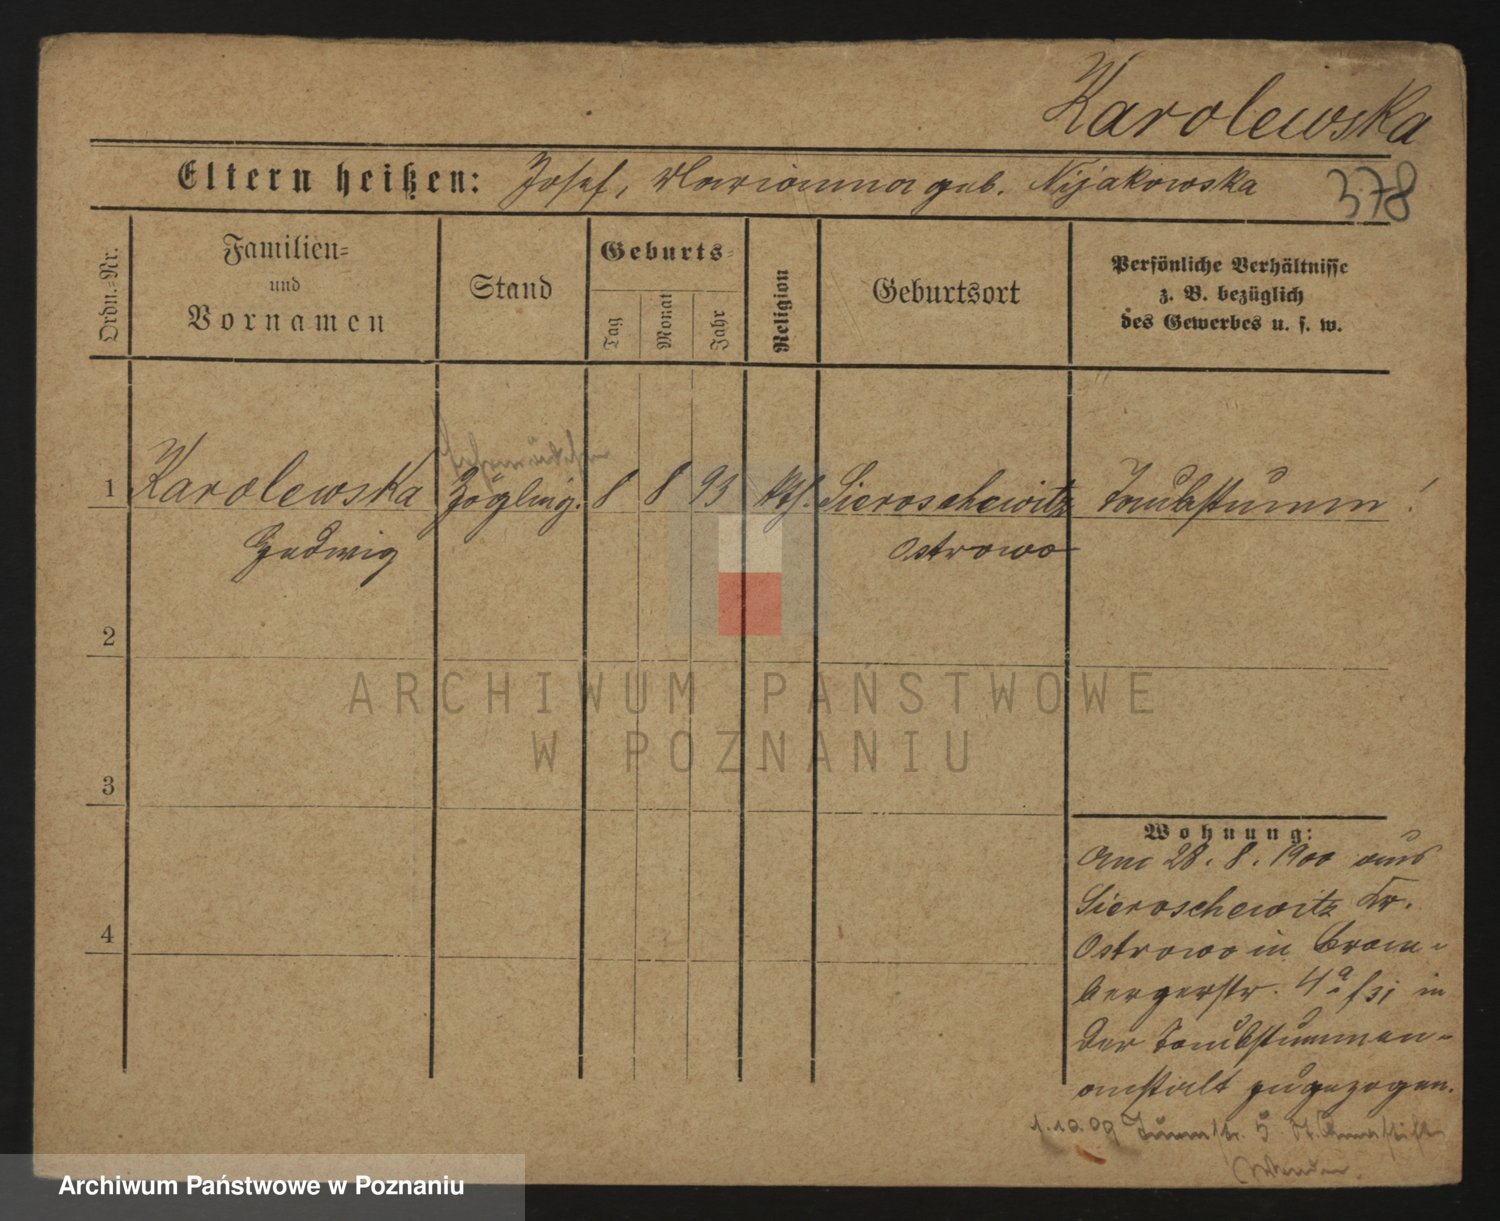 Karolewska
Eltern heißen: Josef, Marianna geb. Nijakowska
378
Ordn.=Nr.
Familien=
und
Vornamen
Stand
Geburts=
Tag
Monat
Jahr
Religion
Geburtsort
Persönliche Verhältnisse
z. B. bezüglich
des Gewerbes u. s. w.
1 Karolewska Zögling. 8 8 93 kth. Sieroschewitz Taubstumm!
Hedwig Ostrowo
2
3
4
Wohnung:
Am 28. 8. 1900 aus
Sieroschewitz Kr.
Ostrowo in Brom-
bergerstr. 4a in
der Taubstummen-
anstalt zugezogen.
1.10.09 5
ARCHIWUM PAŃSTWOWE
W POZNANIU
Archiwum Państwowe w Poznaniu